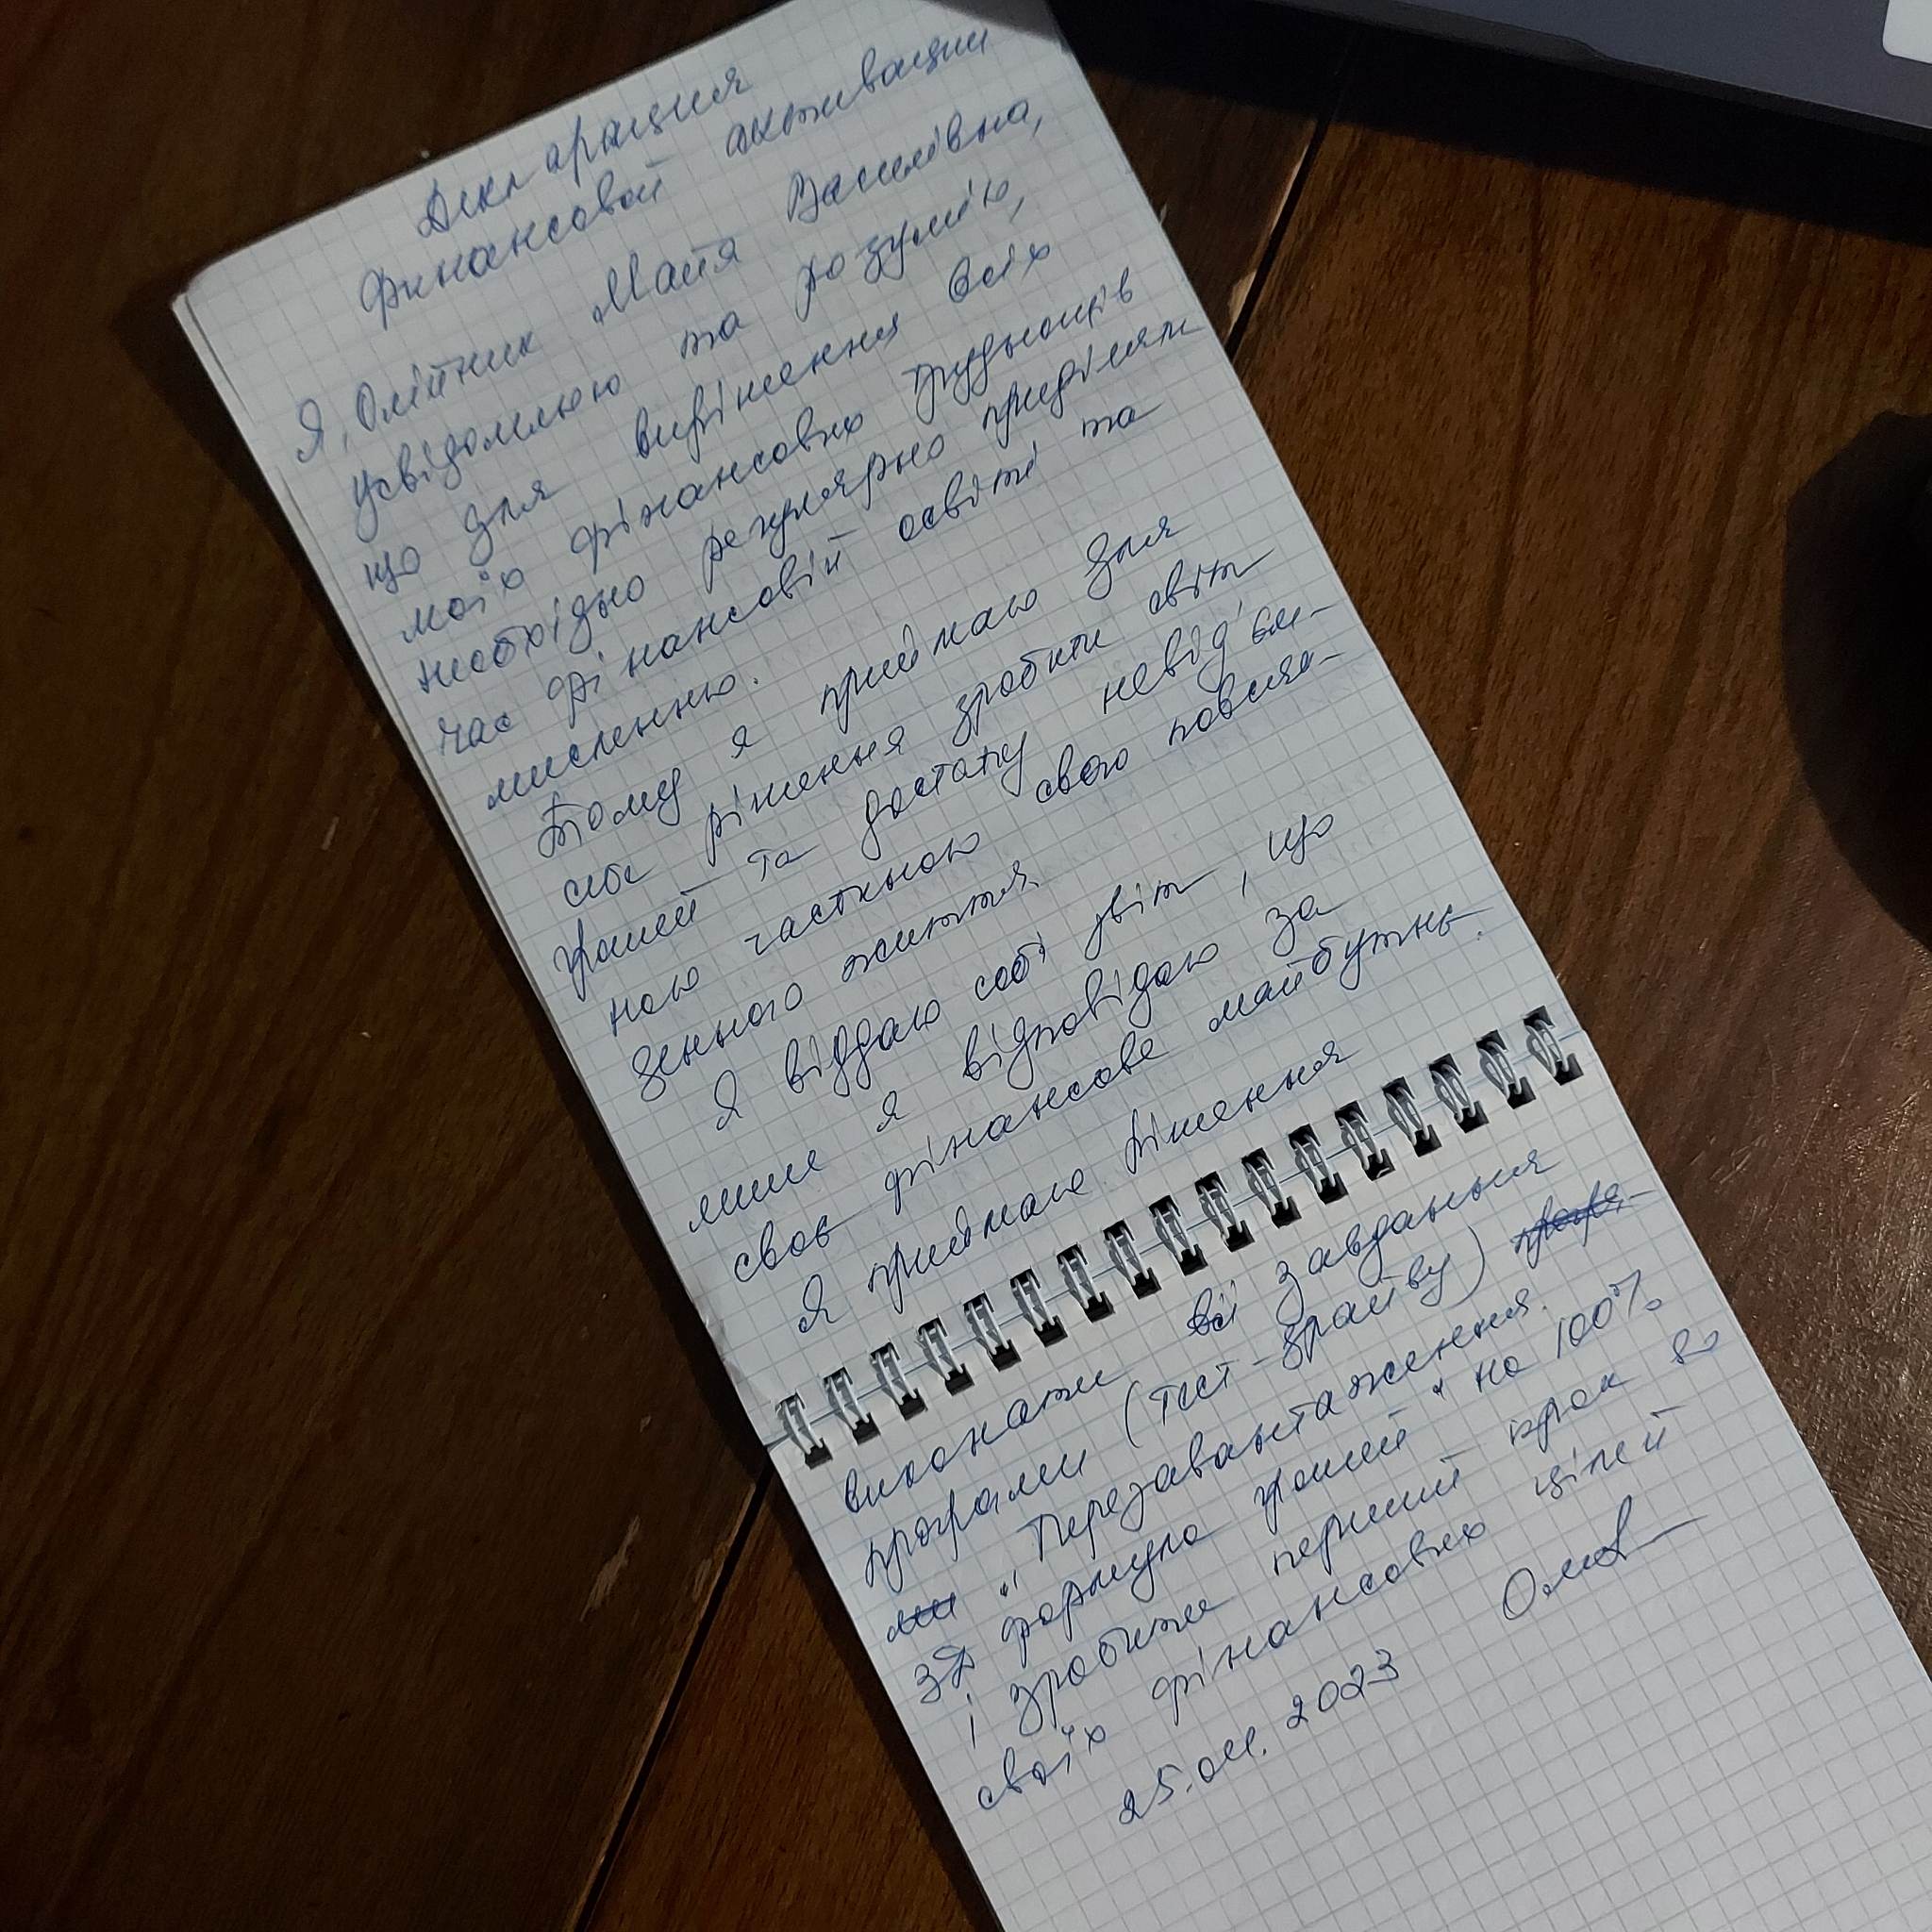 Декларация
Финансовой активации
Я, Олійник Майя Василівна,
усвідомлюю та розумію,
що для вирішення всіх
моїх фінансових труднощів
необхідно регулярно приділяти
час фінансовій освіті та
мисленню.
Тому я приймаю для
себе рішення зробити світ
грошей та достатку невід'єм-
ною часткною свого повсяк-
денного життя.
Я віддаю собі звіт, що
лише я відповідаю за
своє фінансове майбутнє.
Я приймаю рішення
виконати всі завдання
програми (тест-драйву)
"Перезавантаження.
зд формула грошей" на 100%
і зробити перший крок до
своїх фінансових цілей
25.01. 2023